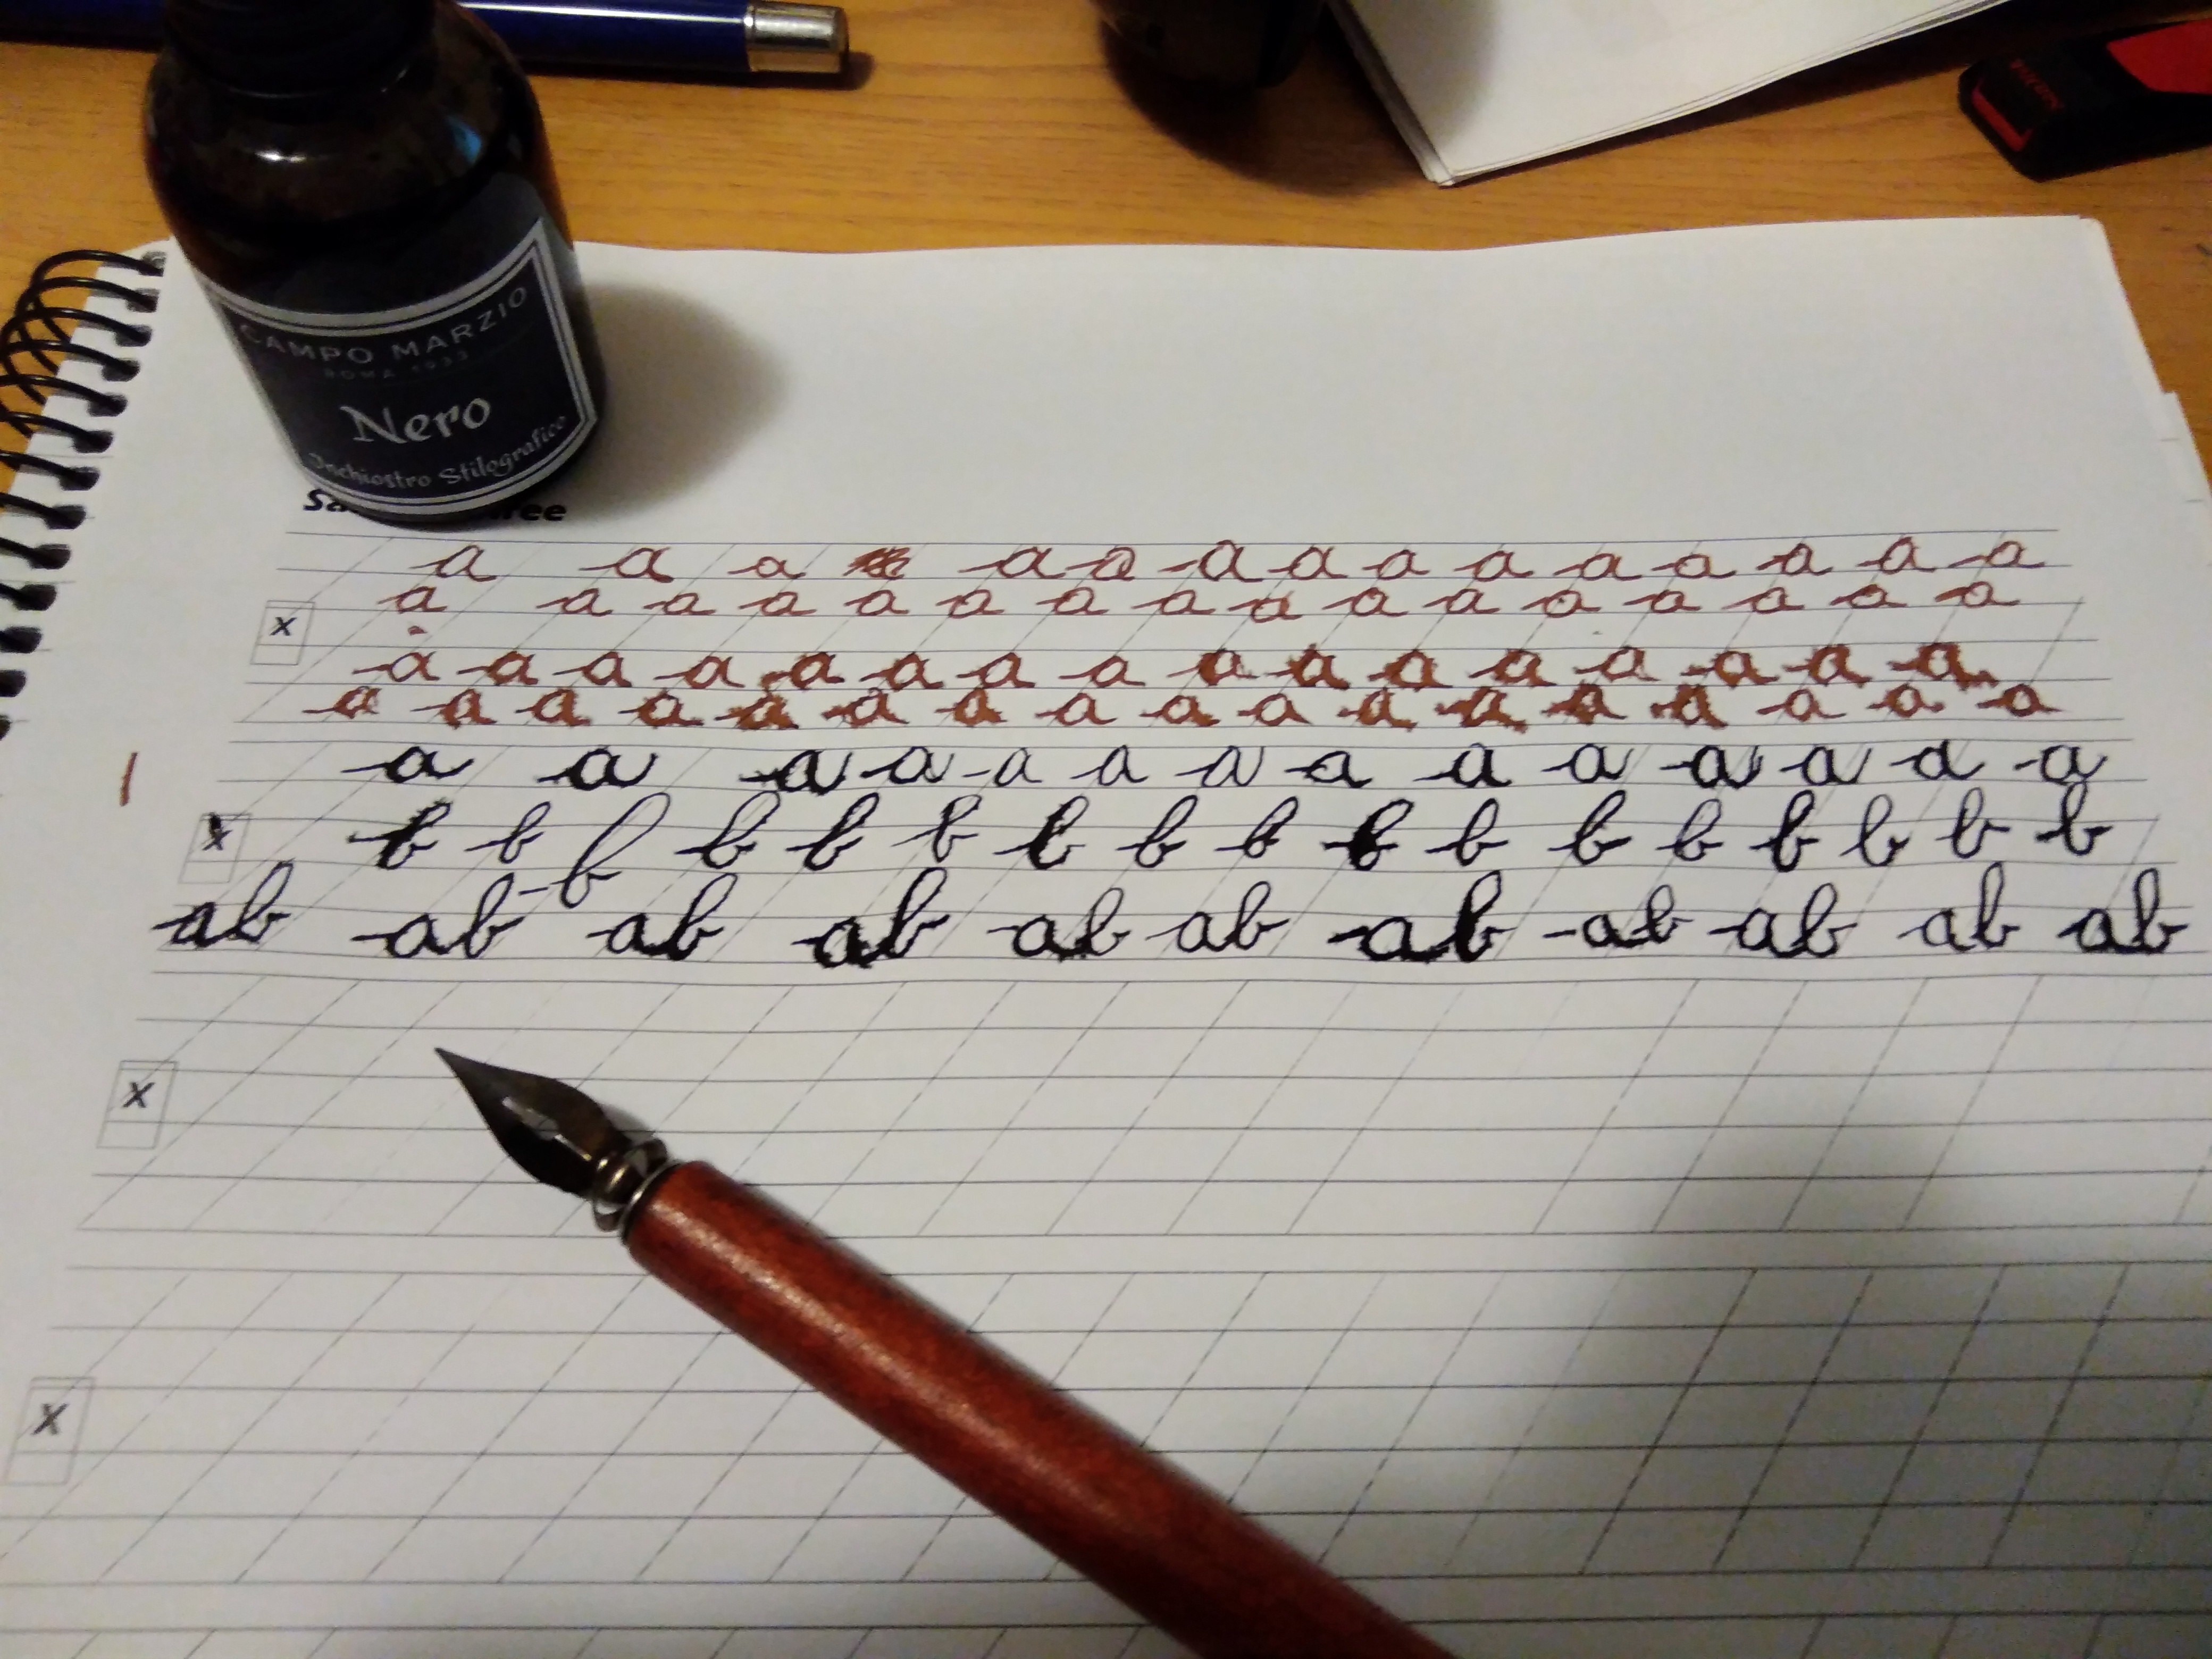 CAMPO MARZIO
ROMA 1933
Nero
Inchiostro Stilografico
a a a a a a a a a a a a a a
a a a a a a a a a a a a a a a a
x
a a a a a a a a a a a a a a a a
a a a a a a a a a a a a a a a a a
a a a a a a a a a a a a a a
x b b b b b b b b b b b b b b b b b
ab ab ab ab ab ab ab ab ab ab ab
x
x